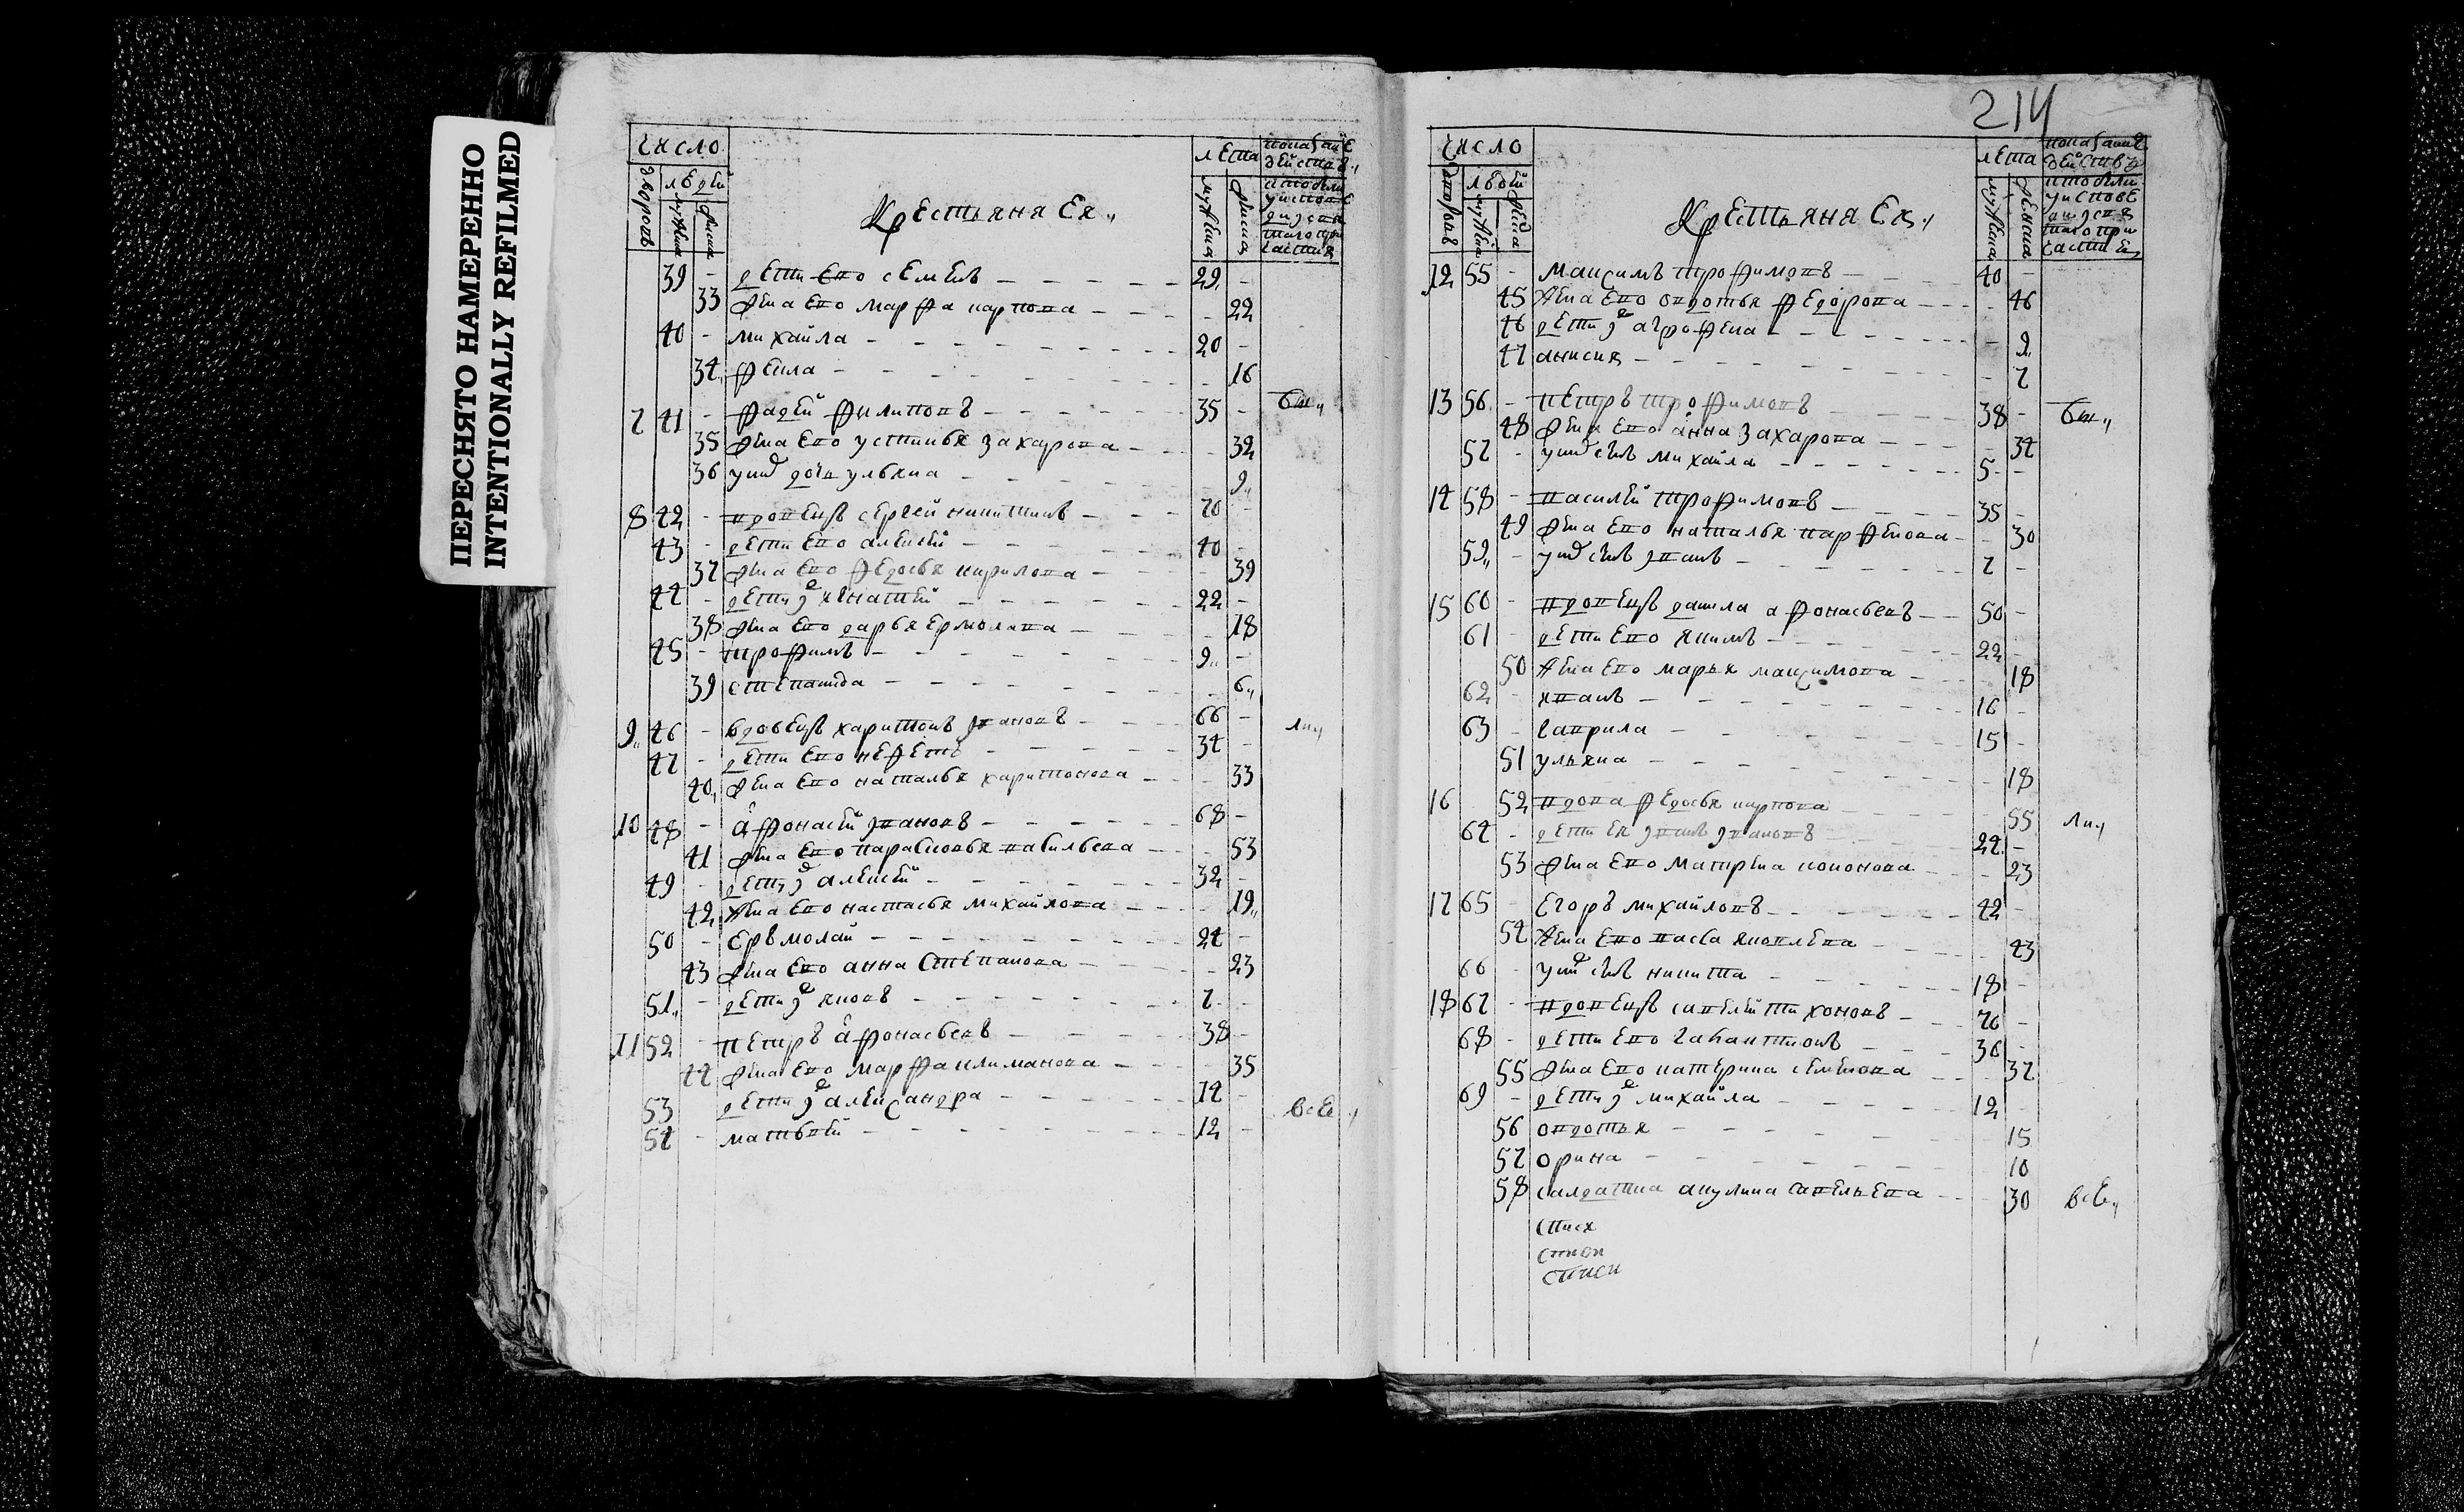 ПЕРЕСНЯТО НАМЕРЕННО
INTENTIONALLY REFILMED
число
дворовъ
людей
мужска
женска
Крестьяня Ея
лета
мужска
женска
39 - дети ево семенъ 29 -
33 жена ево марфа карпова - 22
40 - михайла 20 -
34 фекла - 16
7 41 - фадей филиповъ 35 - бы
35 жена ево устинья захарова - 32
36 у них дочь ульяна - 9
8 42 - вдовецъ сергей никитинъ 70 -
43 - дети ево алексей 40 -
37 жена ево федосья кирилова - 39
44 - дети их игнатей 22 -
38 жена ево дарья ермолаева - 18
45 - трофимъ 9 -
39 степанида - 6
9 46 - вдовецъ харитонъ ивановъ 66 -
47 - дети ево 34 -
40 жена ево наталья харитонова - 33
10 48 - афонасей ивановъ 68 -
41 жена ево парасковья васильева - 53
49 - дети их алексей 32 -
42 жена ево настасья михайлова - 19
50 - ерьмолай 24 -
43 жена ево анна степанова - 23
51 - дети их яковъ 7 -
11 52 - петръ афонасьевъ 38 -
44 жена ево марфа климанова - 35
53 дети их александра 14 -
54 - матвей 12 - все
214
число
дворовъ
людей
мужска
женска
Крестьяня Ея
лета
мужска
женска
12 55 - максимъ трофимовъ 40 -
45 жена ево овдотья федорова - 46
46 дети их агрофена - 9
47 анисия - 7
13 56 - петръ трофимовъ 38 - бы
48 жена ево анна захарова - 34
57 - у них снъ михайла 5 -
14 58 - василей трофимовъ 35 -
49 жена ево наталья парфенова - 30
59 - у них снъ иванъ 7 -
15 60 - вдовецъ данила афонасьевъ 50 -
61 - дети ево якимъ 22 -
50 жена ево марья максимова - 18
62 - иванъ 16 -
63 - гаврила 15 -
51 ульяна - 18
16 52 вдова федосья карпова 55
64 - дети ея иванъ ивановъ 24 -
53 жена ево матрена кононова - 23
17 65 - егоръ михайловъ 42 -
54 жена ево васса яковлева - 43
66 - у них снъ никита 18 -
18 67 - вдовецъ савелей тихоновъ 70 -
68 - дети ево 36 -
55 жена ево катерина семенова - 37
69 - дети их михайла 12 -
56 овдотья - 15
57 орина - 10
58 салдатка акулина савельева - 30 все